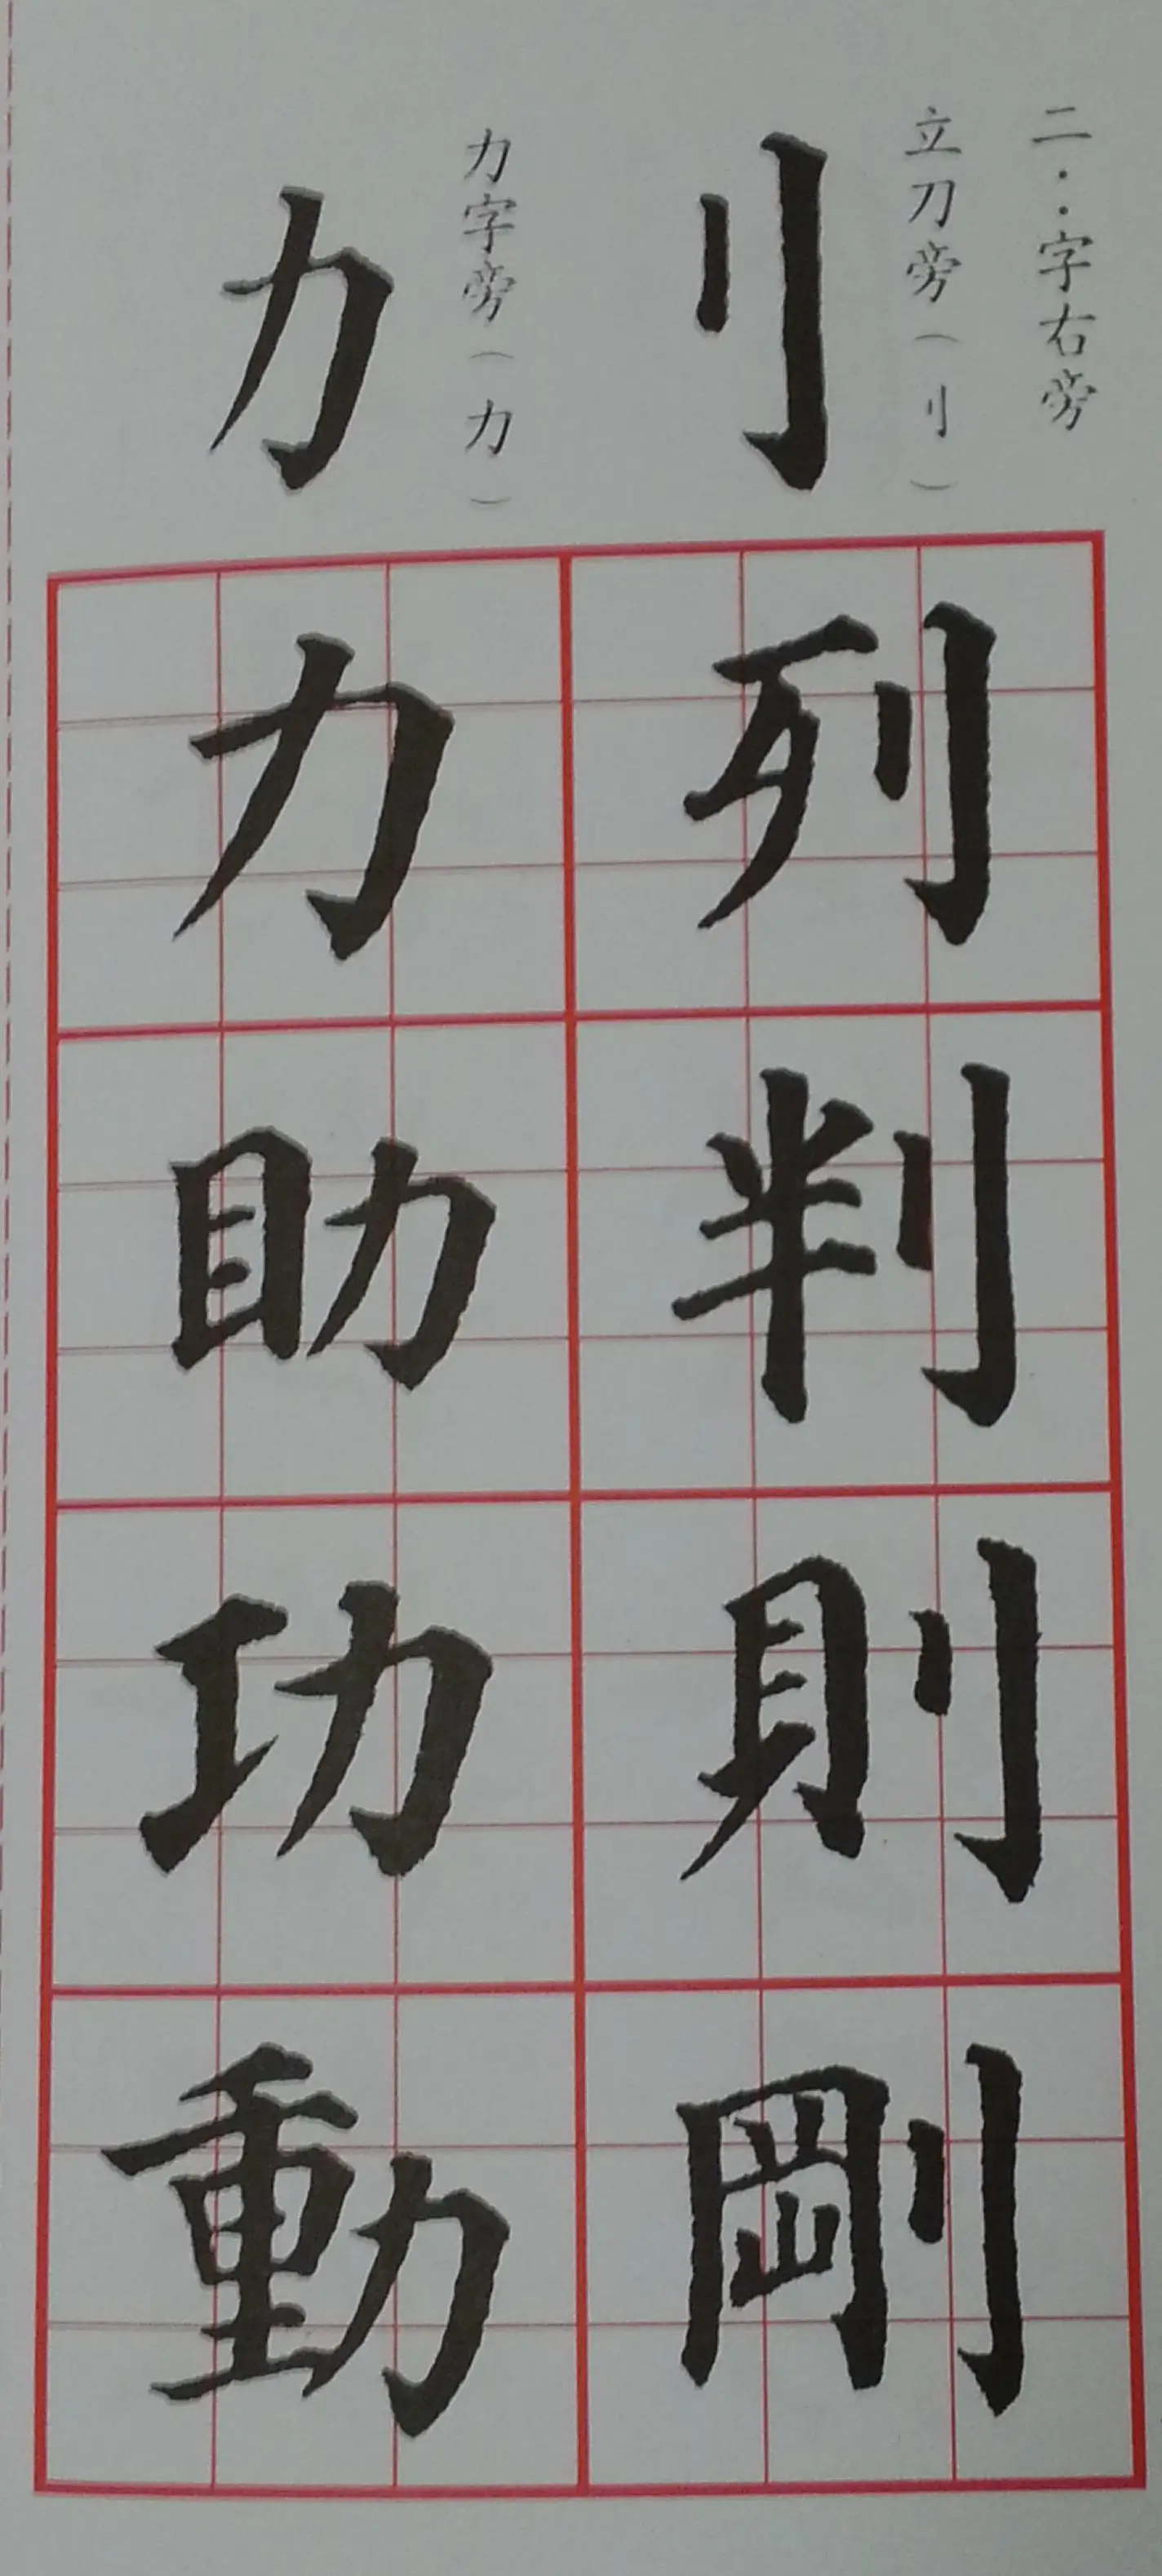 二··字右旁
立刀旁（刂）
刂
列
判
則
剛
力字旁（力）
力
力
助
功
動